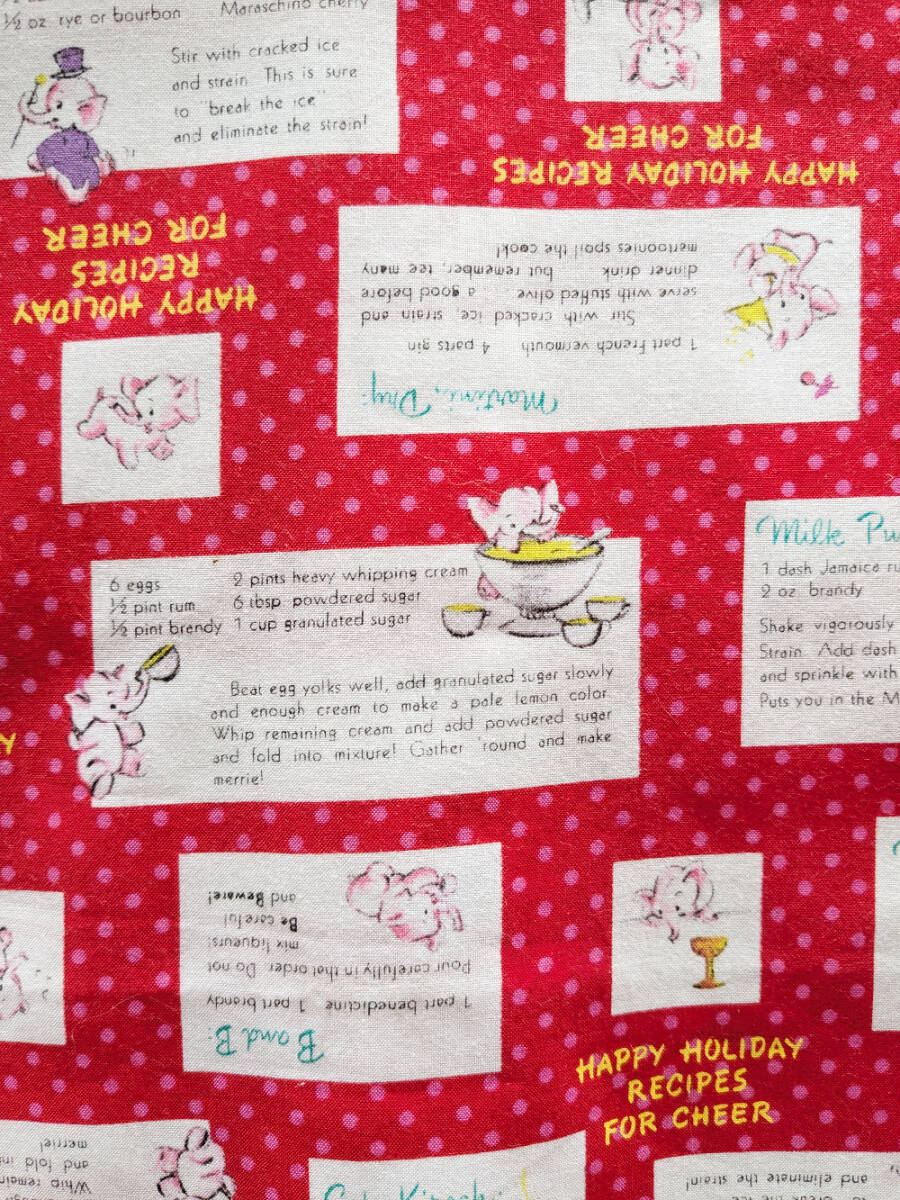 ½ oz rye or bourbon Maraschino cherry
Stir with cracked ice
and strain. This is sure
to "break the ice"
and eliminate the strain!
HAPPY HOLIDAY RECIPES
FOR CHEER
HAPPY HOLIDAY
RECIPES
FOR CHEER
Martini, Dry:
1 part French vermouth 4 parts gin
Stir with cracked ice, strain and
serve with stuffed olive . . . a good before
dinner drink . . . but remember, tee many
martoonies spoil the cook!
6 eggs 2 pints heavy whipping cream
½ pint rum 6 tbsp. powdered sugar
½ pint brandy 1 cup granulated sugar
Beat egg yolks well, add granulated sugar slowly
and enough cream to make a pale lemon color.
Whip remaining cream and add powdered sugar
and fold into mixture! Gather 'round and make
merrie!
Milk Pu
1 dash Jamaica ru
2 oz. brandy
Shake vigorously
Strain. Add dash
and sprinkle with
Puts you in the M
Y
B and B:
1 part benedictine 1 part brandy
Pour carefully in that order. Do not
mix liqueurs!
Be careful
and Beware!
HAPPY HOLIDAY
RECIPES
FOR CHEER
Whip remain
and fold in
merrie!
and eliminate the strain!